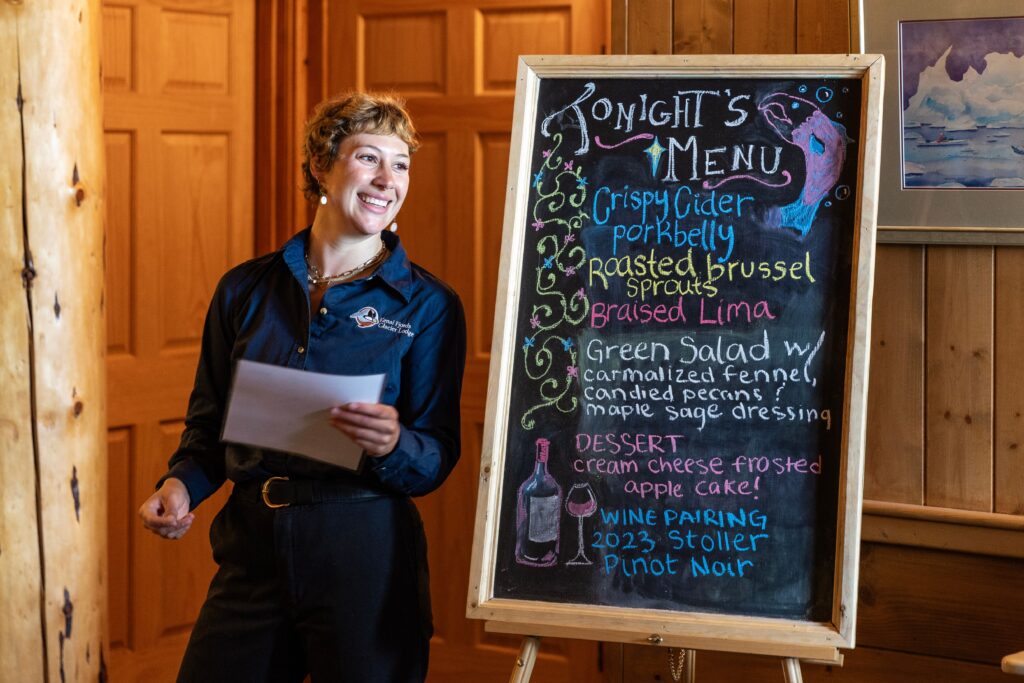 Tonight's
Menu
Crispy Cider
porkbelly
Roasted brussel
sprouts
Braised Lima
Green Salad w/
carmalized fennel,
candied pecans &
maple sage dressing
DESSERT
cream cheese frosted
apple cake!
WINE PAIRING
2023 Stoller
Pinot Noir
Kenai Fjords
Glacier Lodge